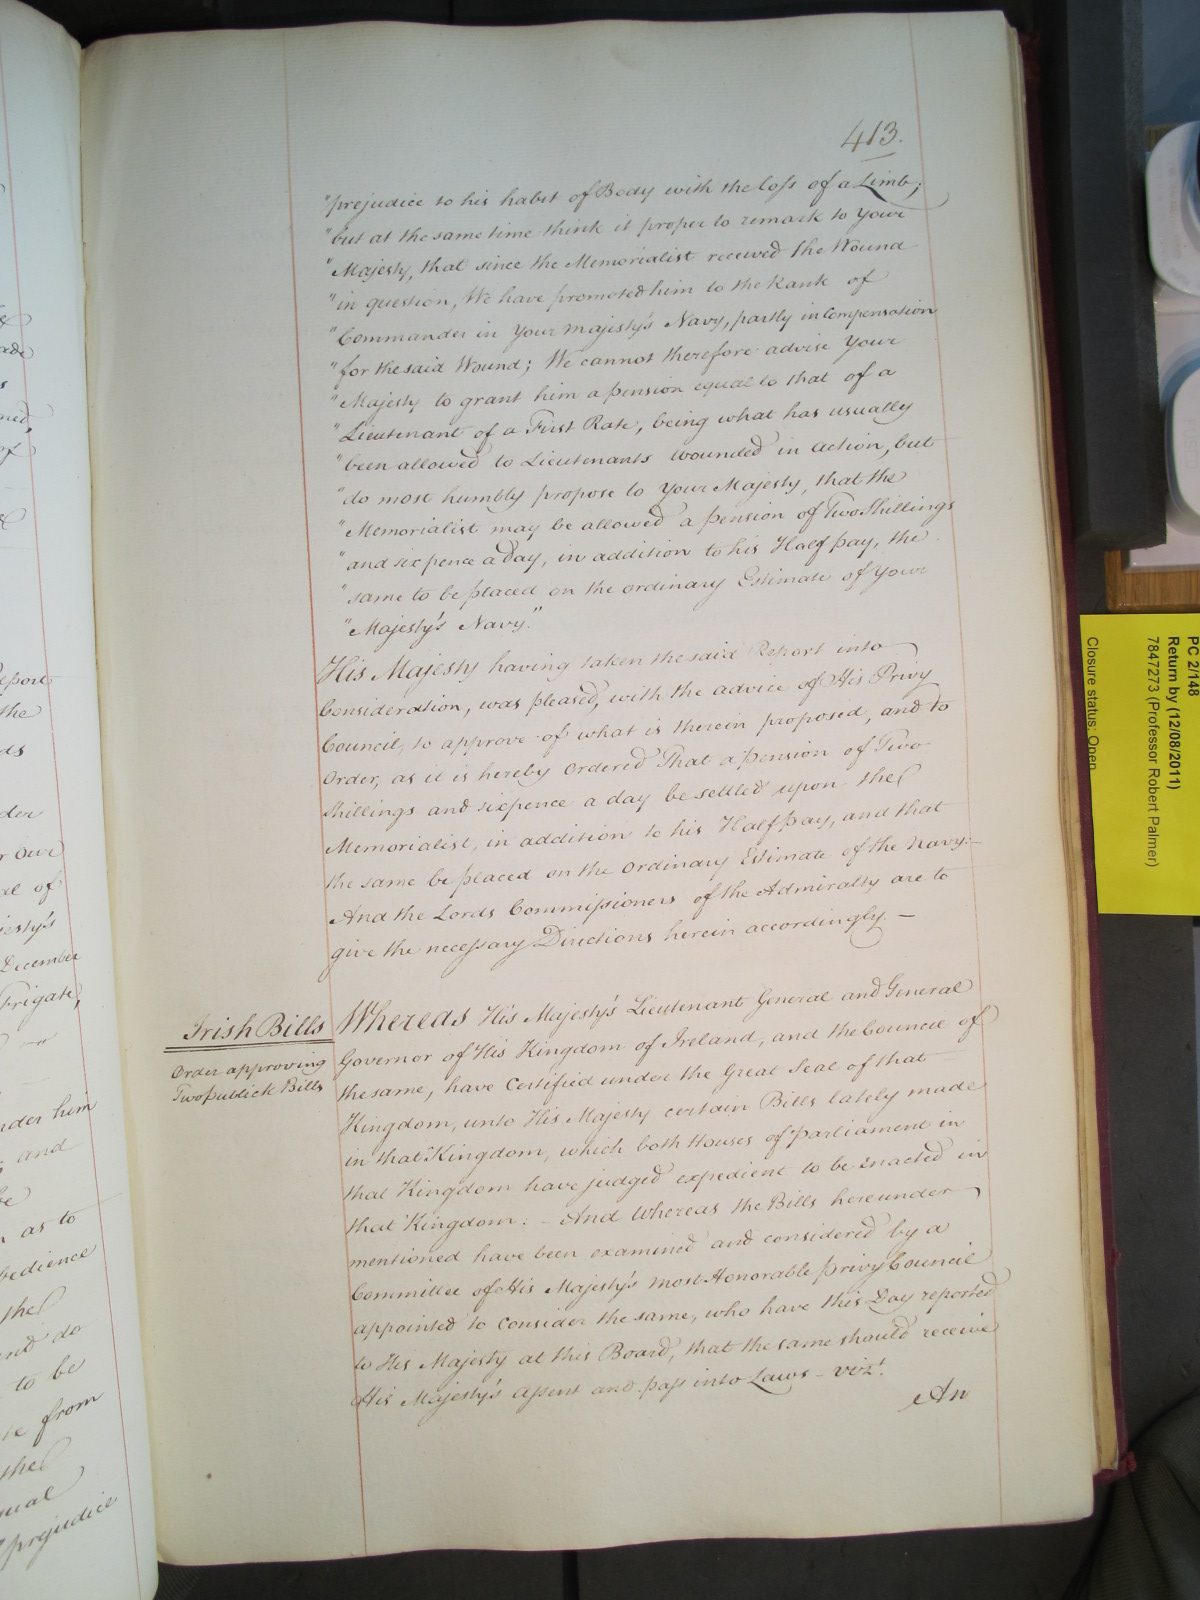 413.
"prejudice to his habit of Body with the loss of a Limb;
"but at the same time think it proper to remark to Your
"Majesty, that since the Memorialist received the Wound
"in question, We have promoted him to the Rank of
"Commander in Your Majesty's Navy, partly in Compensation
"for the said Wound; We cannot therefore advise Your
"Majesty to grant him a Pension equal to that of a
"Lieutenant of a First Rate, being what has usually
"been allowed to Lieutenants wounded in Action, but
"do most humbly propose to Your Majesty, that the
"Memorialist may be allowed a Pension of Two Shillings
"and sixpence a Day, in addition to his Half Pay, the
"same to be placed on the ordinary Estimate of Your
"Majesty's Navy."
His Majesty having taken the said Report into
Consideration, was pleased, with the advice of His Privy
Council, to approve of what is therein proposed, and to
Order, as it is hereby Ordered That a Pension of Two
Shillings and sixpence a day be settled upon the
Memorialist, in addition to his Half Pay, and that
the same be placed on the Ordinary Estimate of the Navy:—
And the Lords Commissioners of the Admiralty are to
give the necessary Directions herein accordingly. —
Irish Bills
Order approving
Two Publick Bills
Whereas His Majesty's Lieutenant General and General
Governor of His Kingdom of Ireland, and the Council of
the same, have Certified under the Great Seal of that
Kingdom, unto His Majesty certain Bills lately made
in that Kingdom, which both Houses of Parliament in
that Kingdom have judged expedient to be Enacted in
that Kingdom: – And Whereas the Bills hereunder
mentioned have been examined and considered by a
Committee of His Majesty's most Honorable Privy Council
appointed to Consider the same, who have this Day reported
to His Majesty at this Board, that the same should receive
His Majesty's Assent and pass into Laws – vizt.
An
PC 2/148
Return by (12/08/2011)
7847273 (Professor Robert Palmer)
Closure status: Open
eport
the
der
al of
jesty's
December
Frigate,
nder him
and
as to
bedience
the
and do
to be
from
the
prejudice